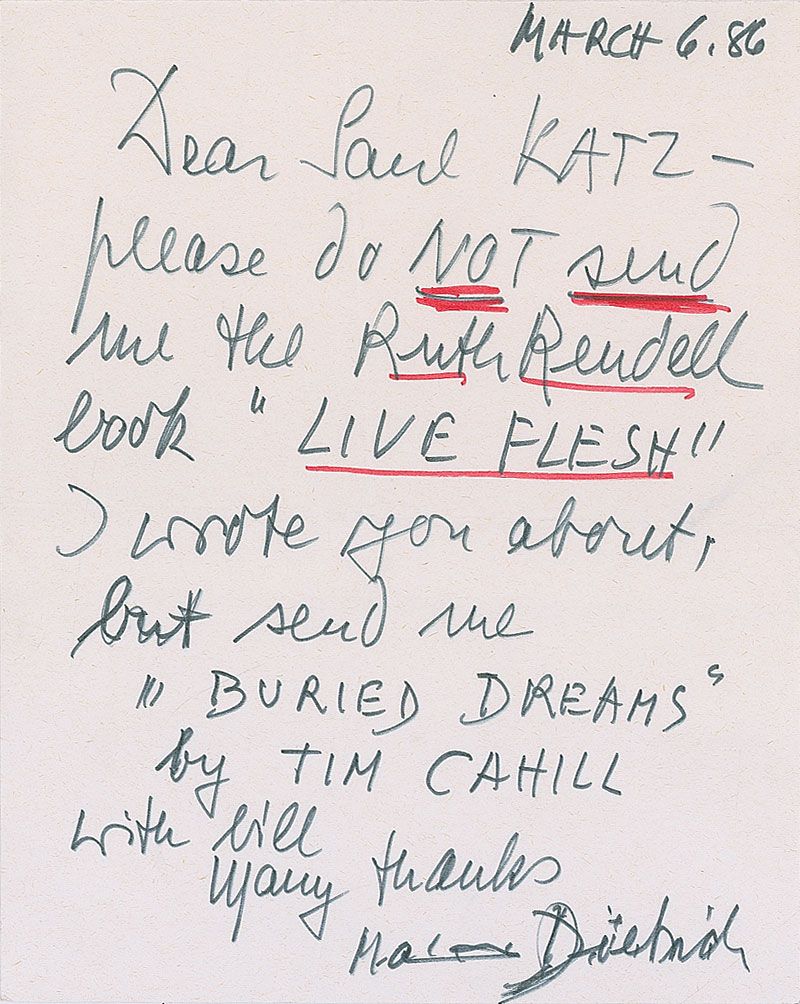 MARCH 6.86
Dear Saul KATZ -
please do NOT send
me the Ruth Rendell
book " LIVE FLESH"
I wrote you about,
but send me
" BURIED DREAMS"
by TIM CAHILL
with bill
Many thanks
Marlene Dietrich